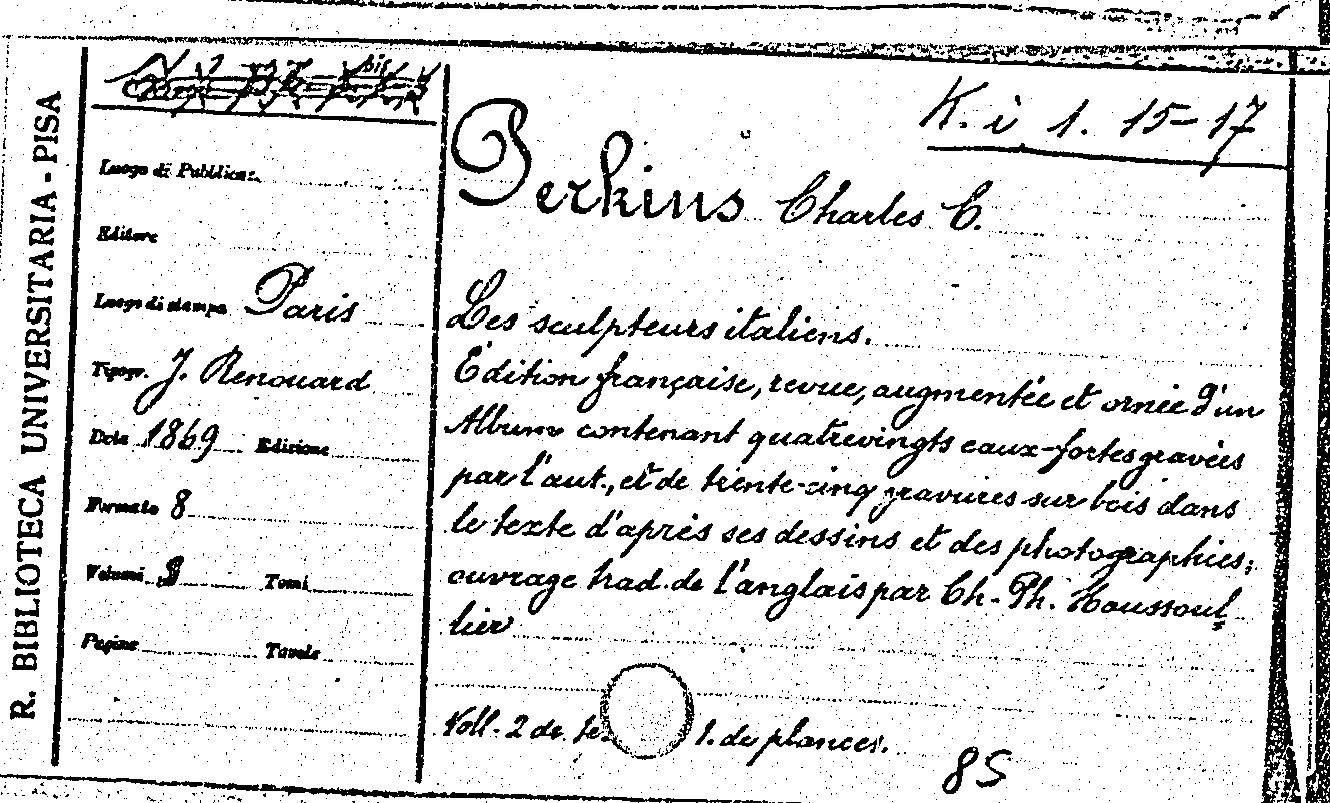 R. BIBLIOTECA UNIVERSITARIA - PISA
bis
K. i 1. 15-17
Luogo di Pubblicaz.
Perkins Charles C.
Editore
Luogo di stampa Paris
Tipogr. J. Renouard
Data 1869 Edizione
Formato 8
Volumi 3 Tomi
Pagine Tavole
Les sculpteurs italiens.
Edition française, revue, augmentée et ornée d'un
Album contenant quatrevingts eaux-fortes gravées
par l'aut., et de trente-cinq gravures sur bois dans
le texte d'après ses dessins et des photographies;
ouvrage trad. de l'anglais par Ch.-Ph. Haussoul
lier
Voll. 2 de te 1. de plances.
85